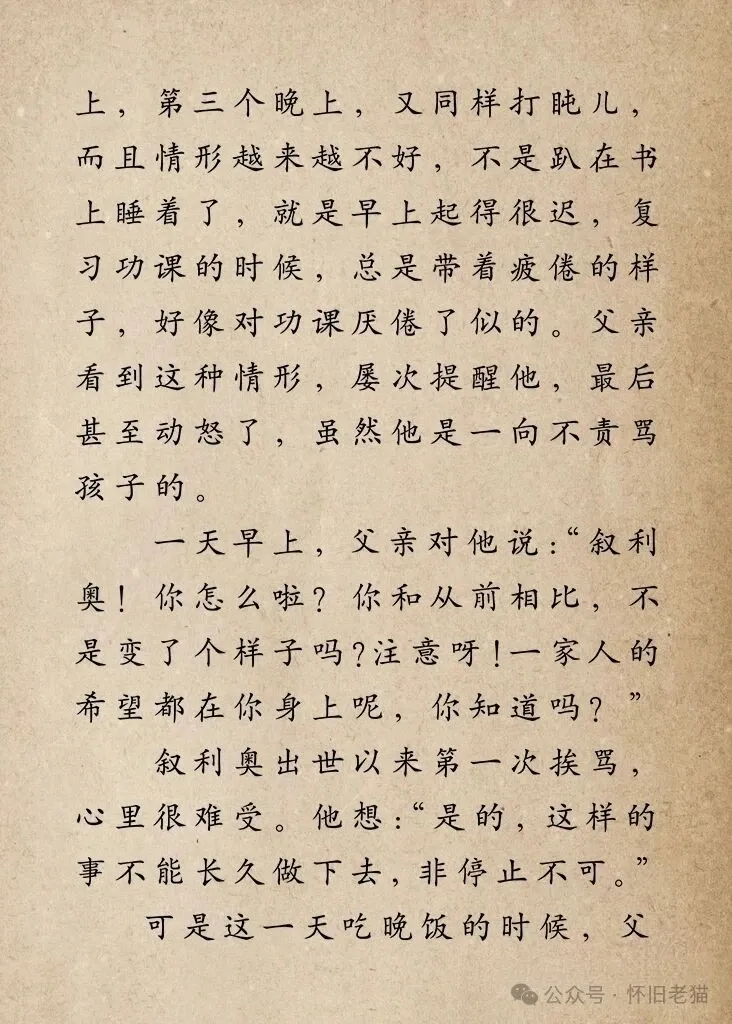 上，第三个晚上，又同样打盹儿，
而且情形越来越不好，不是趴在书
上睡着了，就是早上起得很迟，复
习功课的时候，总是带着疲倦的样
子，好像对功课厌倦了似的。父亲
看到这种情形，屡次提醒他，最后
甚至动怒了，虽然他是一向不责骂
孩子的。
一天早上，父亲对他说：“叙利
奥！你怎么啦？你和从前相比，不
是变了个样子吗？注意呀！一家人的
希望都在你身上呢，你知道吗？”
叙利奥出世以来第一次挨骂，
心里很难受。他想：“是的，这样的
事不能长久做下去，非停止不可。”
可是这一天吃晚饭的时候，父
公众号·怀旧老猫